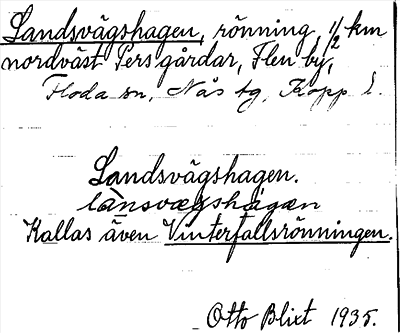 Landsvägshagen, rönning, 1/2 km
nordväst Persgårdar, Flen by,
Floda sn, Nås tg, Kopp l.
Landsvägshagen.
lànsvægshágæn
Kallas även Vinterfallsrönningen.
Otto Blixt 1935.